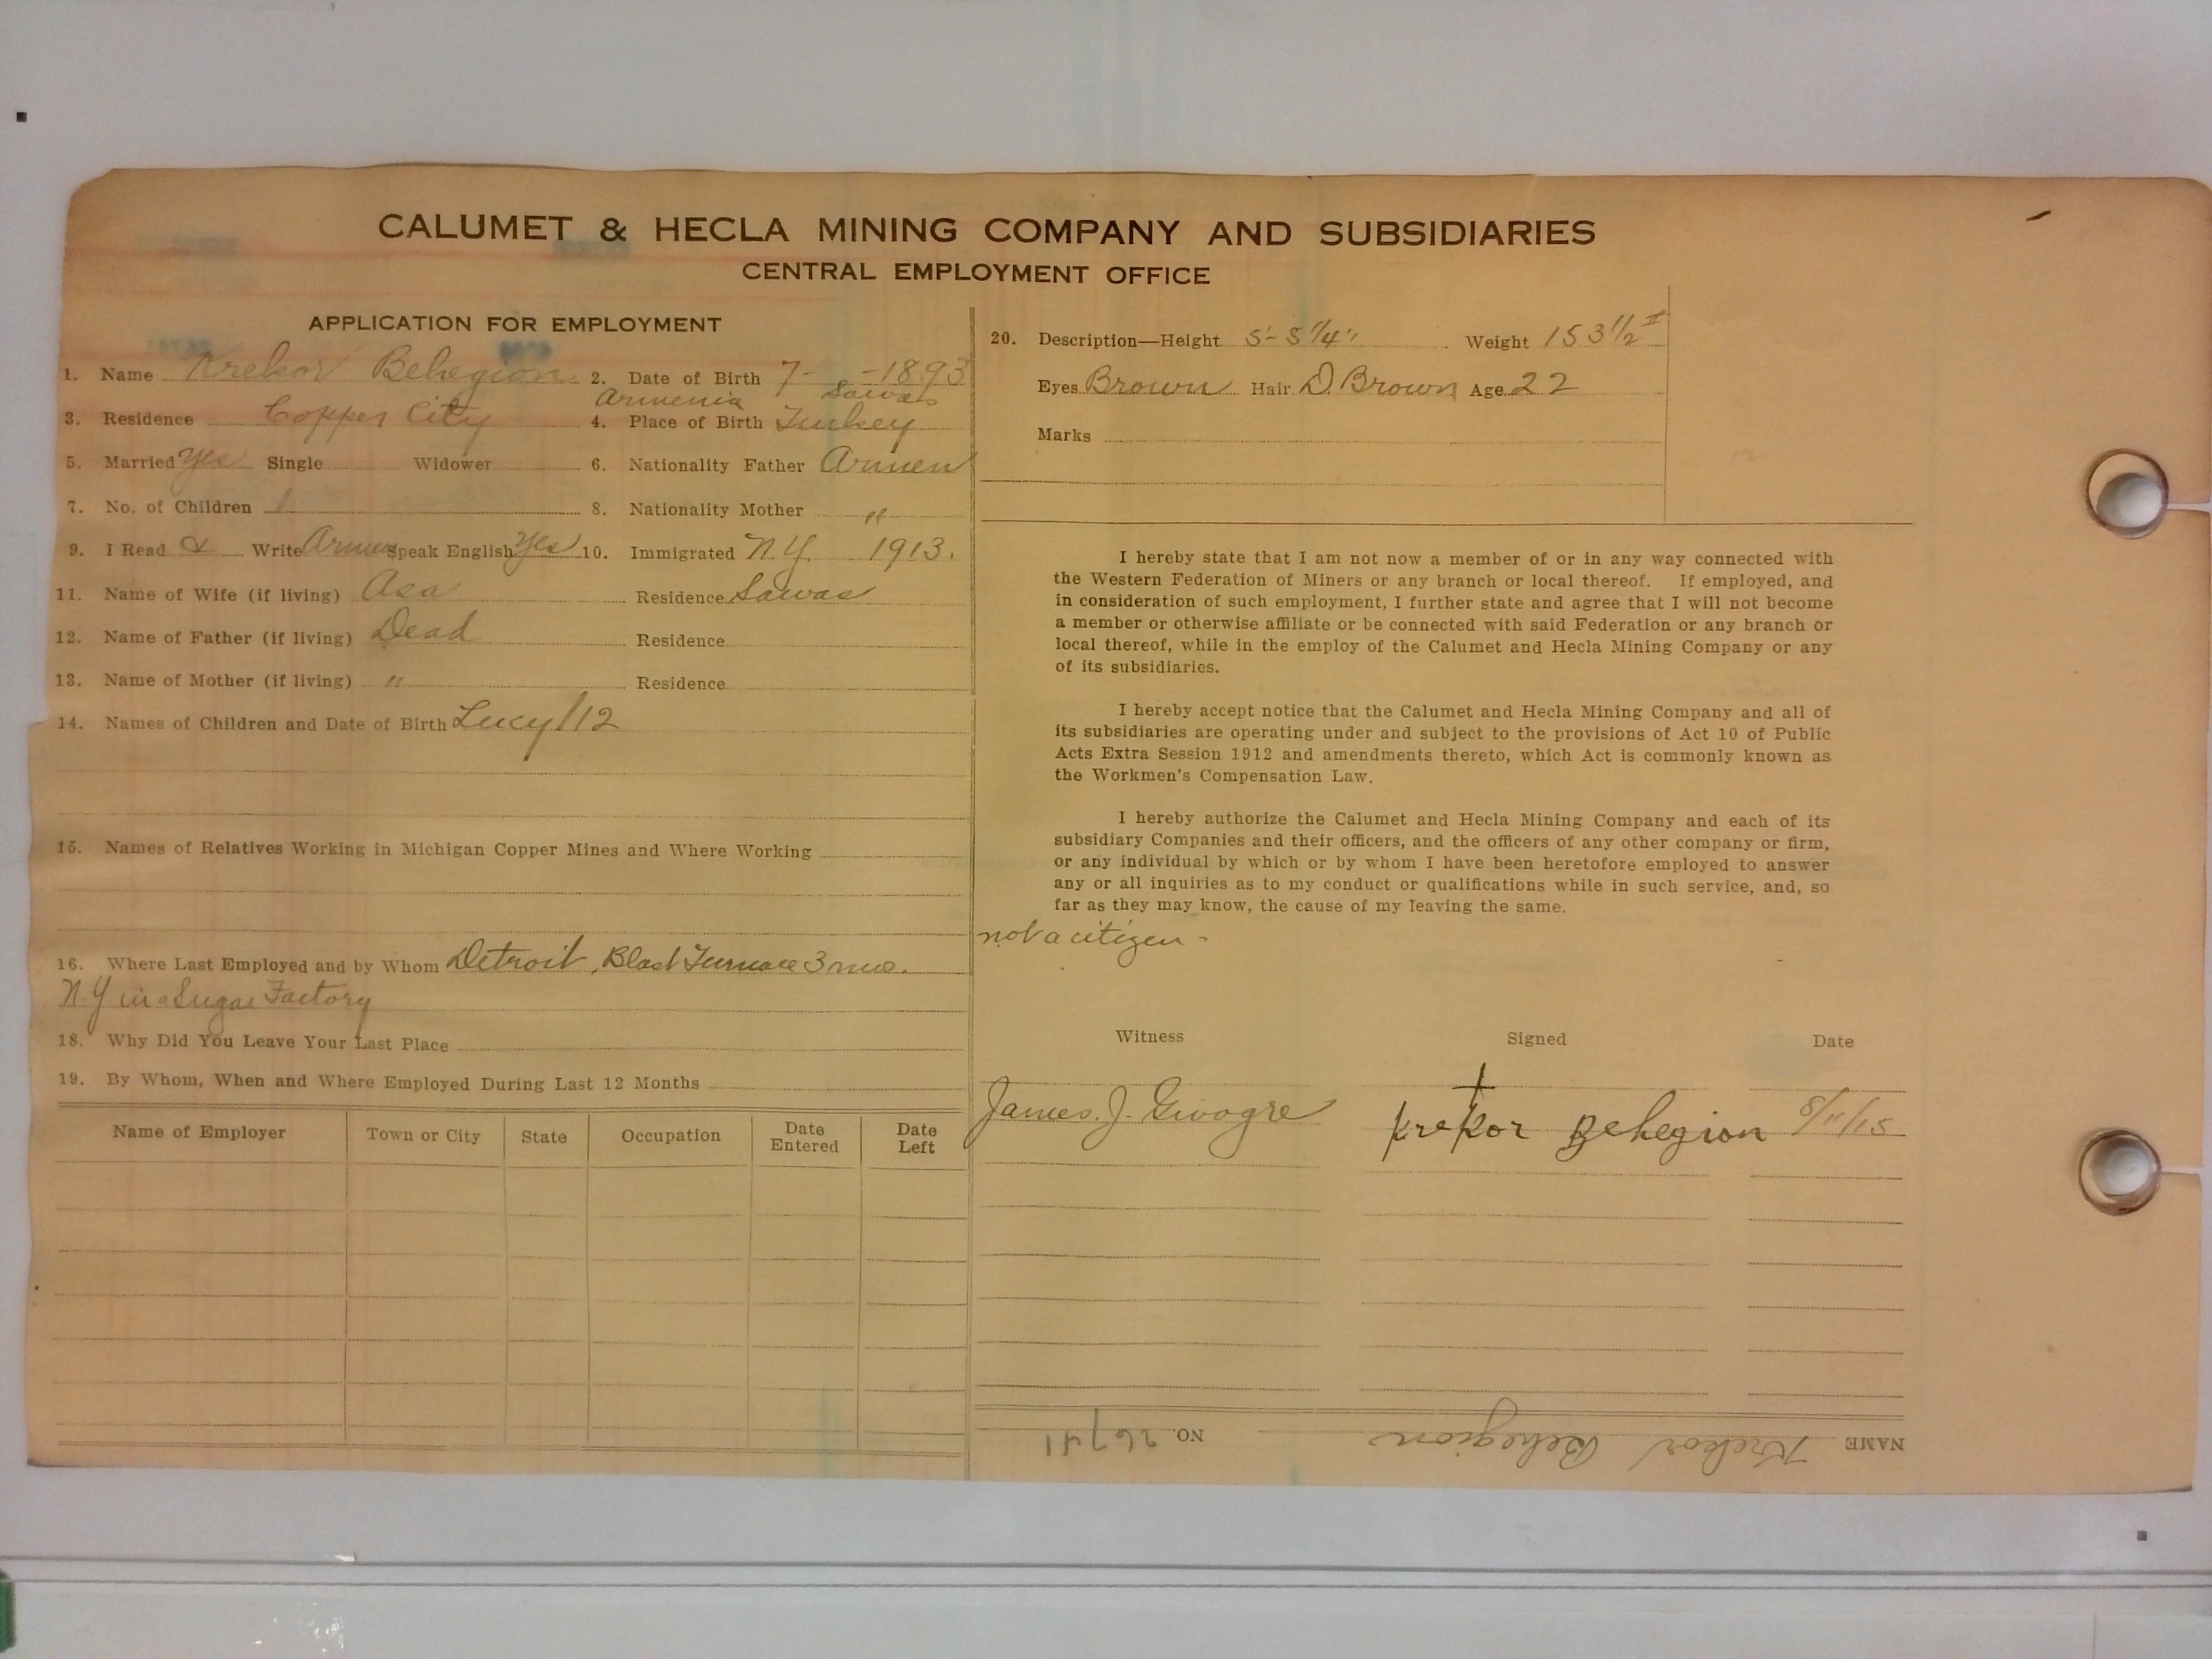 CALUMET & HECLA MINING COMPANY AND SUBSIDIARIES
CENTRAL EMPLOYMENT OFFICE
APPLICATION FOR EMPLOYMENT
1. Name Krekor Behegion 2. Date of Birth 7- -1893
Armenia Sawas
3. Residence Copper City 4. Place of Birth Turkey
5. Married Yes Single Widower 6. Nationality Father Armen
7. No. of Children 1 8. Nationality Mother "
9. I Read & Write Armen Speak English Yes 10. Immigrated N.Y. 1913.
11. Name of Wife (if living) Asa Residence Sawas
12. Name of Father (if living) Dead Residence
13. Name of Mother (if living) " Residence
14. Names of Children and Date of Birth Lucy/12
15. Names of Relatives Working in Michigan Copper Mines and Where Working
16. Where Last Employed and by Whom Detroit, Blast Furnace 3 mos.
N.Y in a Sugar Factory
18. Why Did You Leave Your Last Place
19. By Whom, When and Where Employed During Last 12 Months
Name of Employer Town or City State Occupation Date Entered Date Left
20. Description—Height 5'-5 1/4" Weight 153 1/2
Eyes Brown Hair D. Brown Age 22
Marks
I hereby state that I am not now a member of or in any way connected with
the Western Federation of Miners or any branch or local thereof. If employed, and
in consideration of such employment, I further state and agree that I will not become
a member or otherwise affiliate or be connected with said Federation or any branch or
local thereof, while in the employ of the Calumet and Hecla Mining Company or any
of its subsidiaries.
I hereby accept notice that the Calumet and Hecla Mining Company and all of
its subsidiaries are operating under and subject to the provisions of Act 10 of Public
Acts Extra Session 1912 and amendments thereto, which Act is commonly known as
the Workmen's Compensation Law.
I hereby authorize the Calumet and Hecla Mining Company and each of its
subsidiary Companies and their officers, and the officers of any other company or firm,
or any individual by which or by whom I have been heretofore employed to answer
any or all inquiries as to my conduct or qualifications while in such service, and, so
far as they may know, the cause of my leaving the same.
not a citizen -
Witness Signed Date
James. J. Krekor Behegion 8/11/15
NAME Krekor Behegion NO. 26741